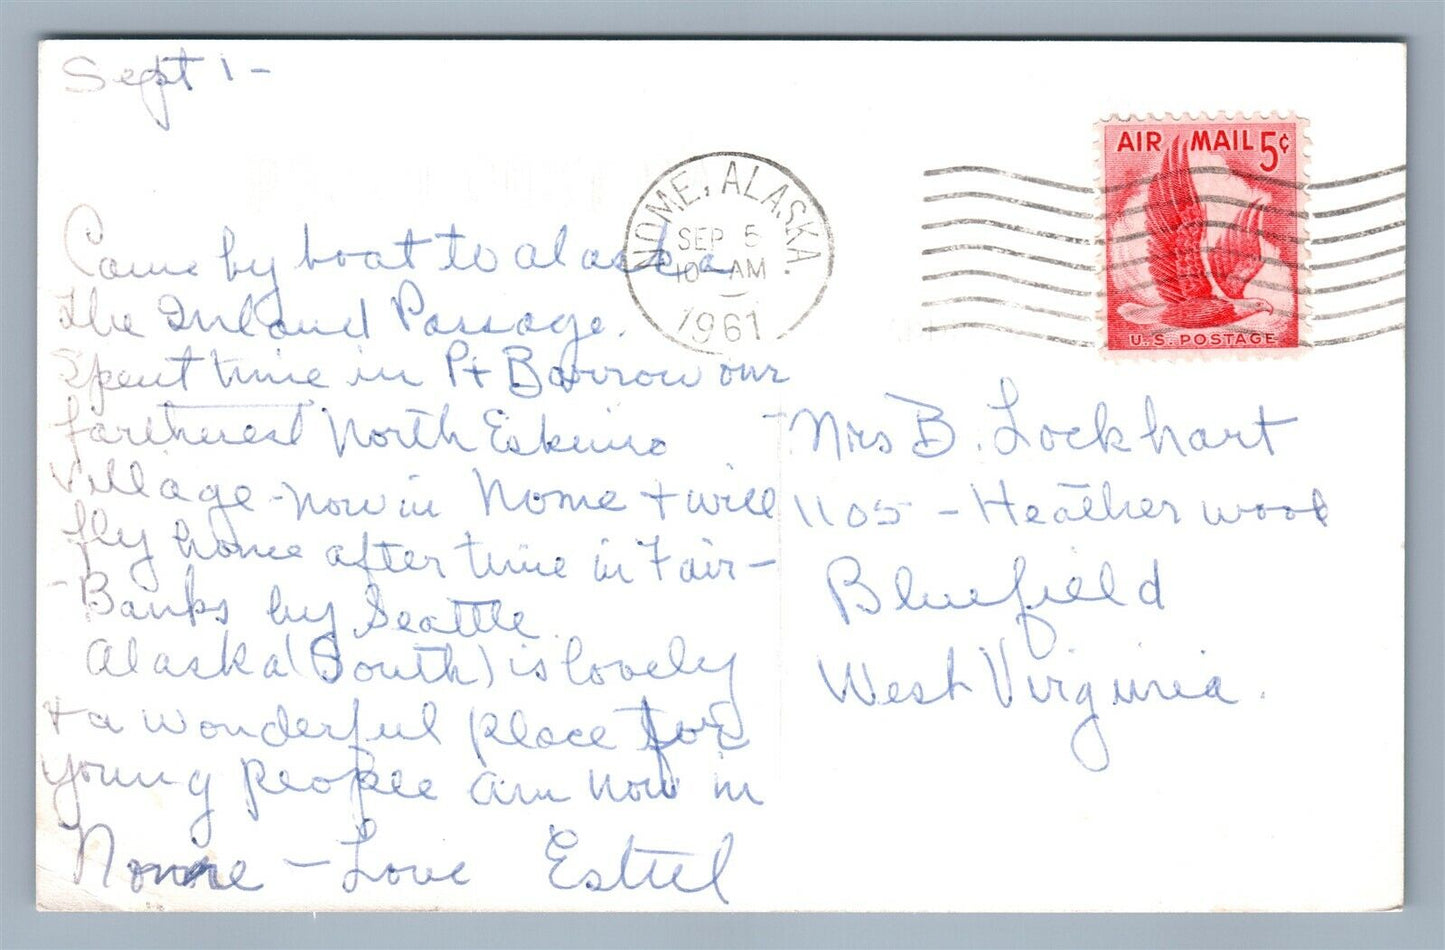 Sept 1 -
Came by boat to alaska
The Inland Passage.
Spent time in Pt Barrow our
fartherest North Eskimo
Village - now in Nome + will
fly home after time in Fair-
Banks by Seattle.
Alaska (South) is lovely
+ a wonderful place for
young people am now in
Nome - Love Estell
NOME, ALASKA.
SEP 5
10 AM
1961
AIR MAIL 5¢
U.S. POSTAGE
Mrs B. Lockhart
1105 - Heatherwood
Bluefield
West Virginia.